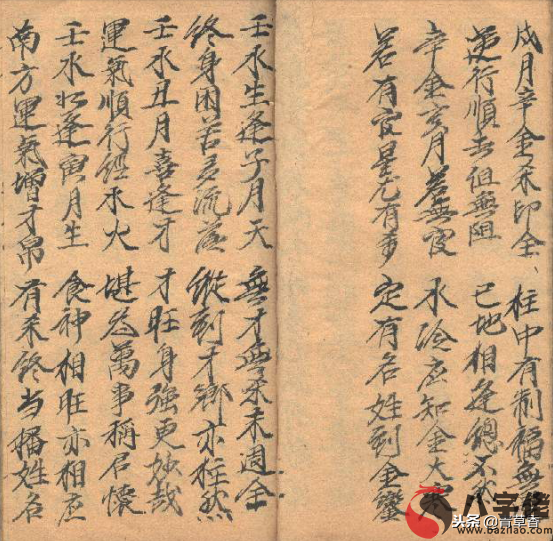 戍月辛金禾印全 柱中有制福無
逆行順去但無阻 已地相逢總不
辛金亥月若無官 水冷应知金大寒
若有官星尤有事 定有名姓到金鑾
壬水生逢子月天 無才無禾未週全
終身困苦多流落 縱到才鄉亦枉然
壬水丑月喜逢才 才旺身強更妙哉
運氣順行經木火 堪為萬事稱君懷
壬水逢寅月生 食神相旺亦相应
南方運氣增才帛 有禾終当播姓名
八字
头条 @青草香